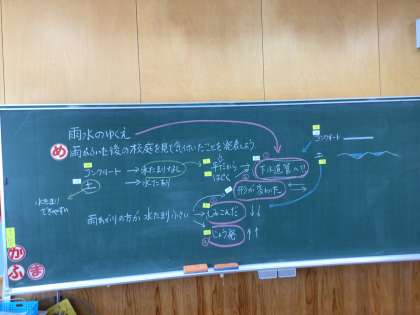 雨水のゆくえ
め 雨がふった後の校庭を見て気付いたことを発表しよう
コンクリート → 水たまりなし
土 → 水たまり
水たまり
できやすい
平だから
下水道管へ
形が変わった
コンクリート
雨あがりの方が水たまり小さい
しみこんだ ↓↓
じょう発 ↑↑
か
ふ
ま